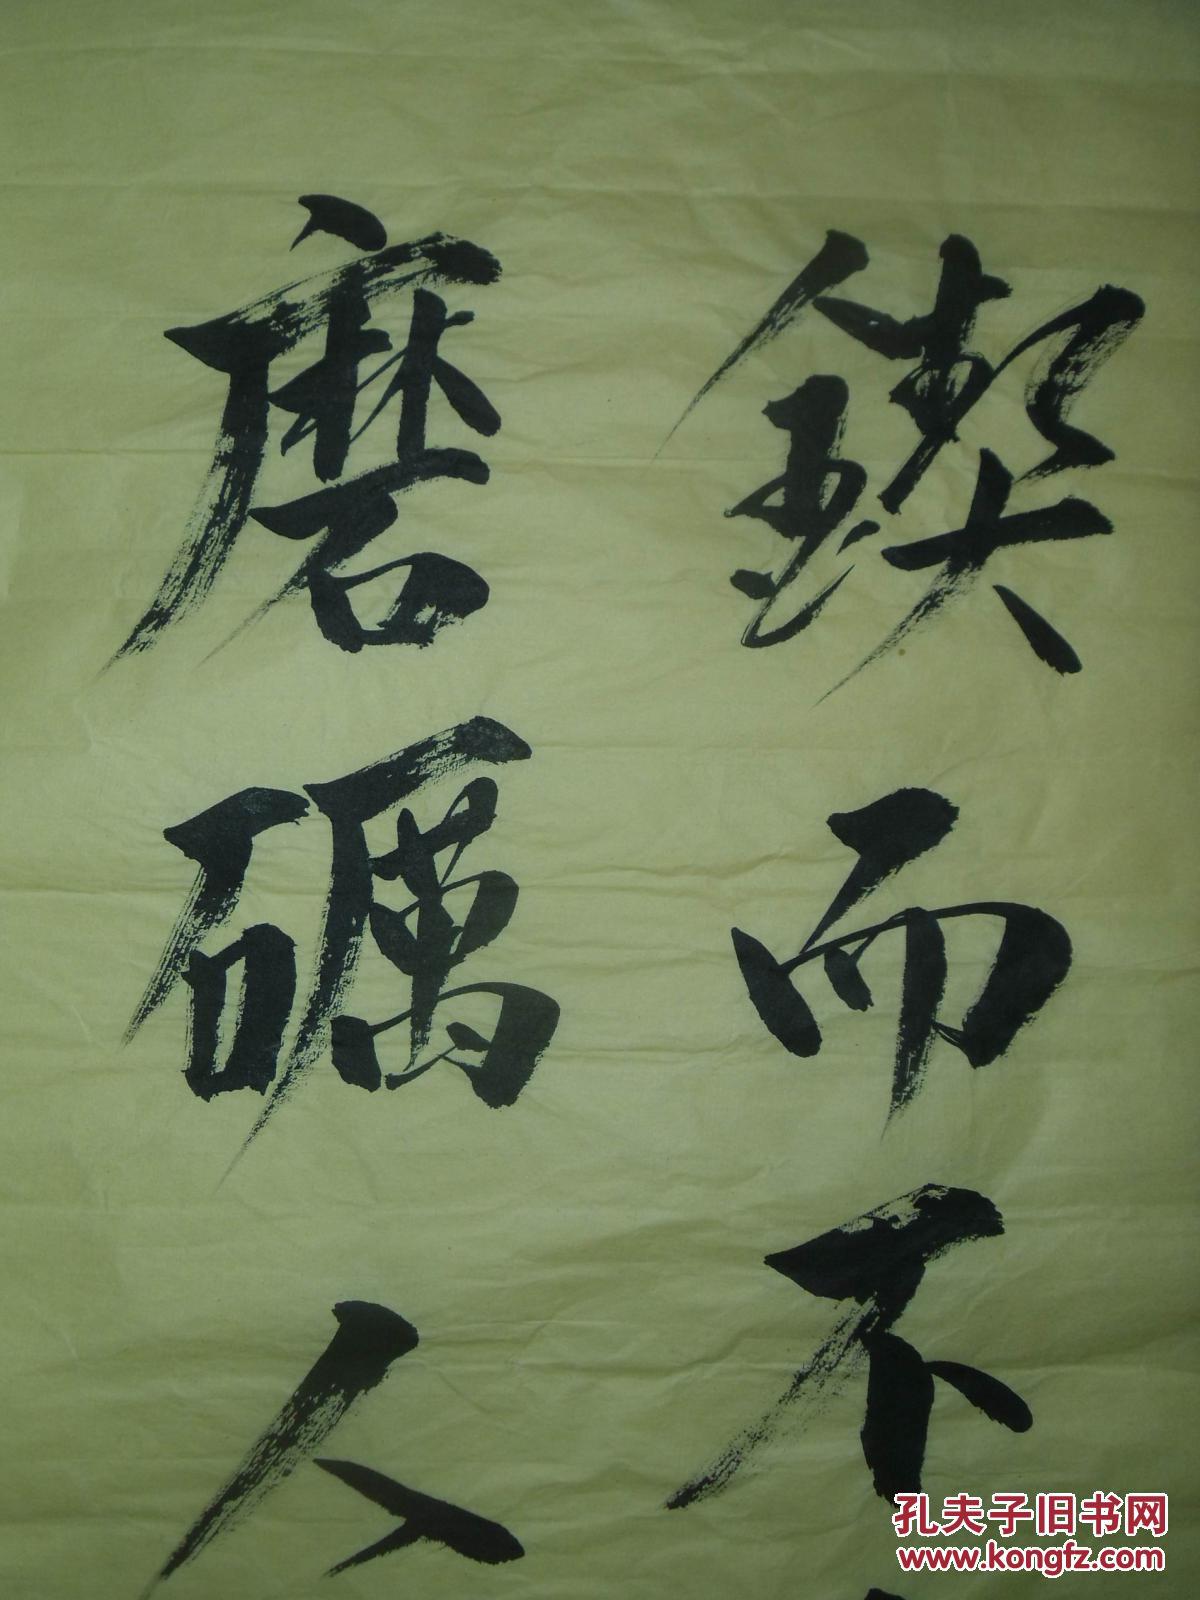 鍥而不
磨礪人
孔夫子旧书网
www.kongfz.com